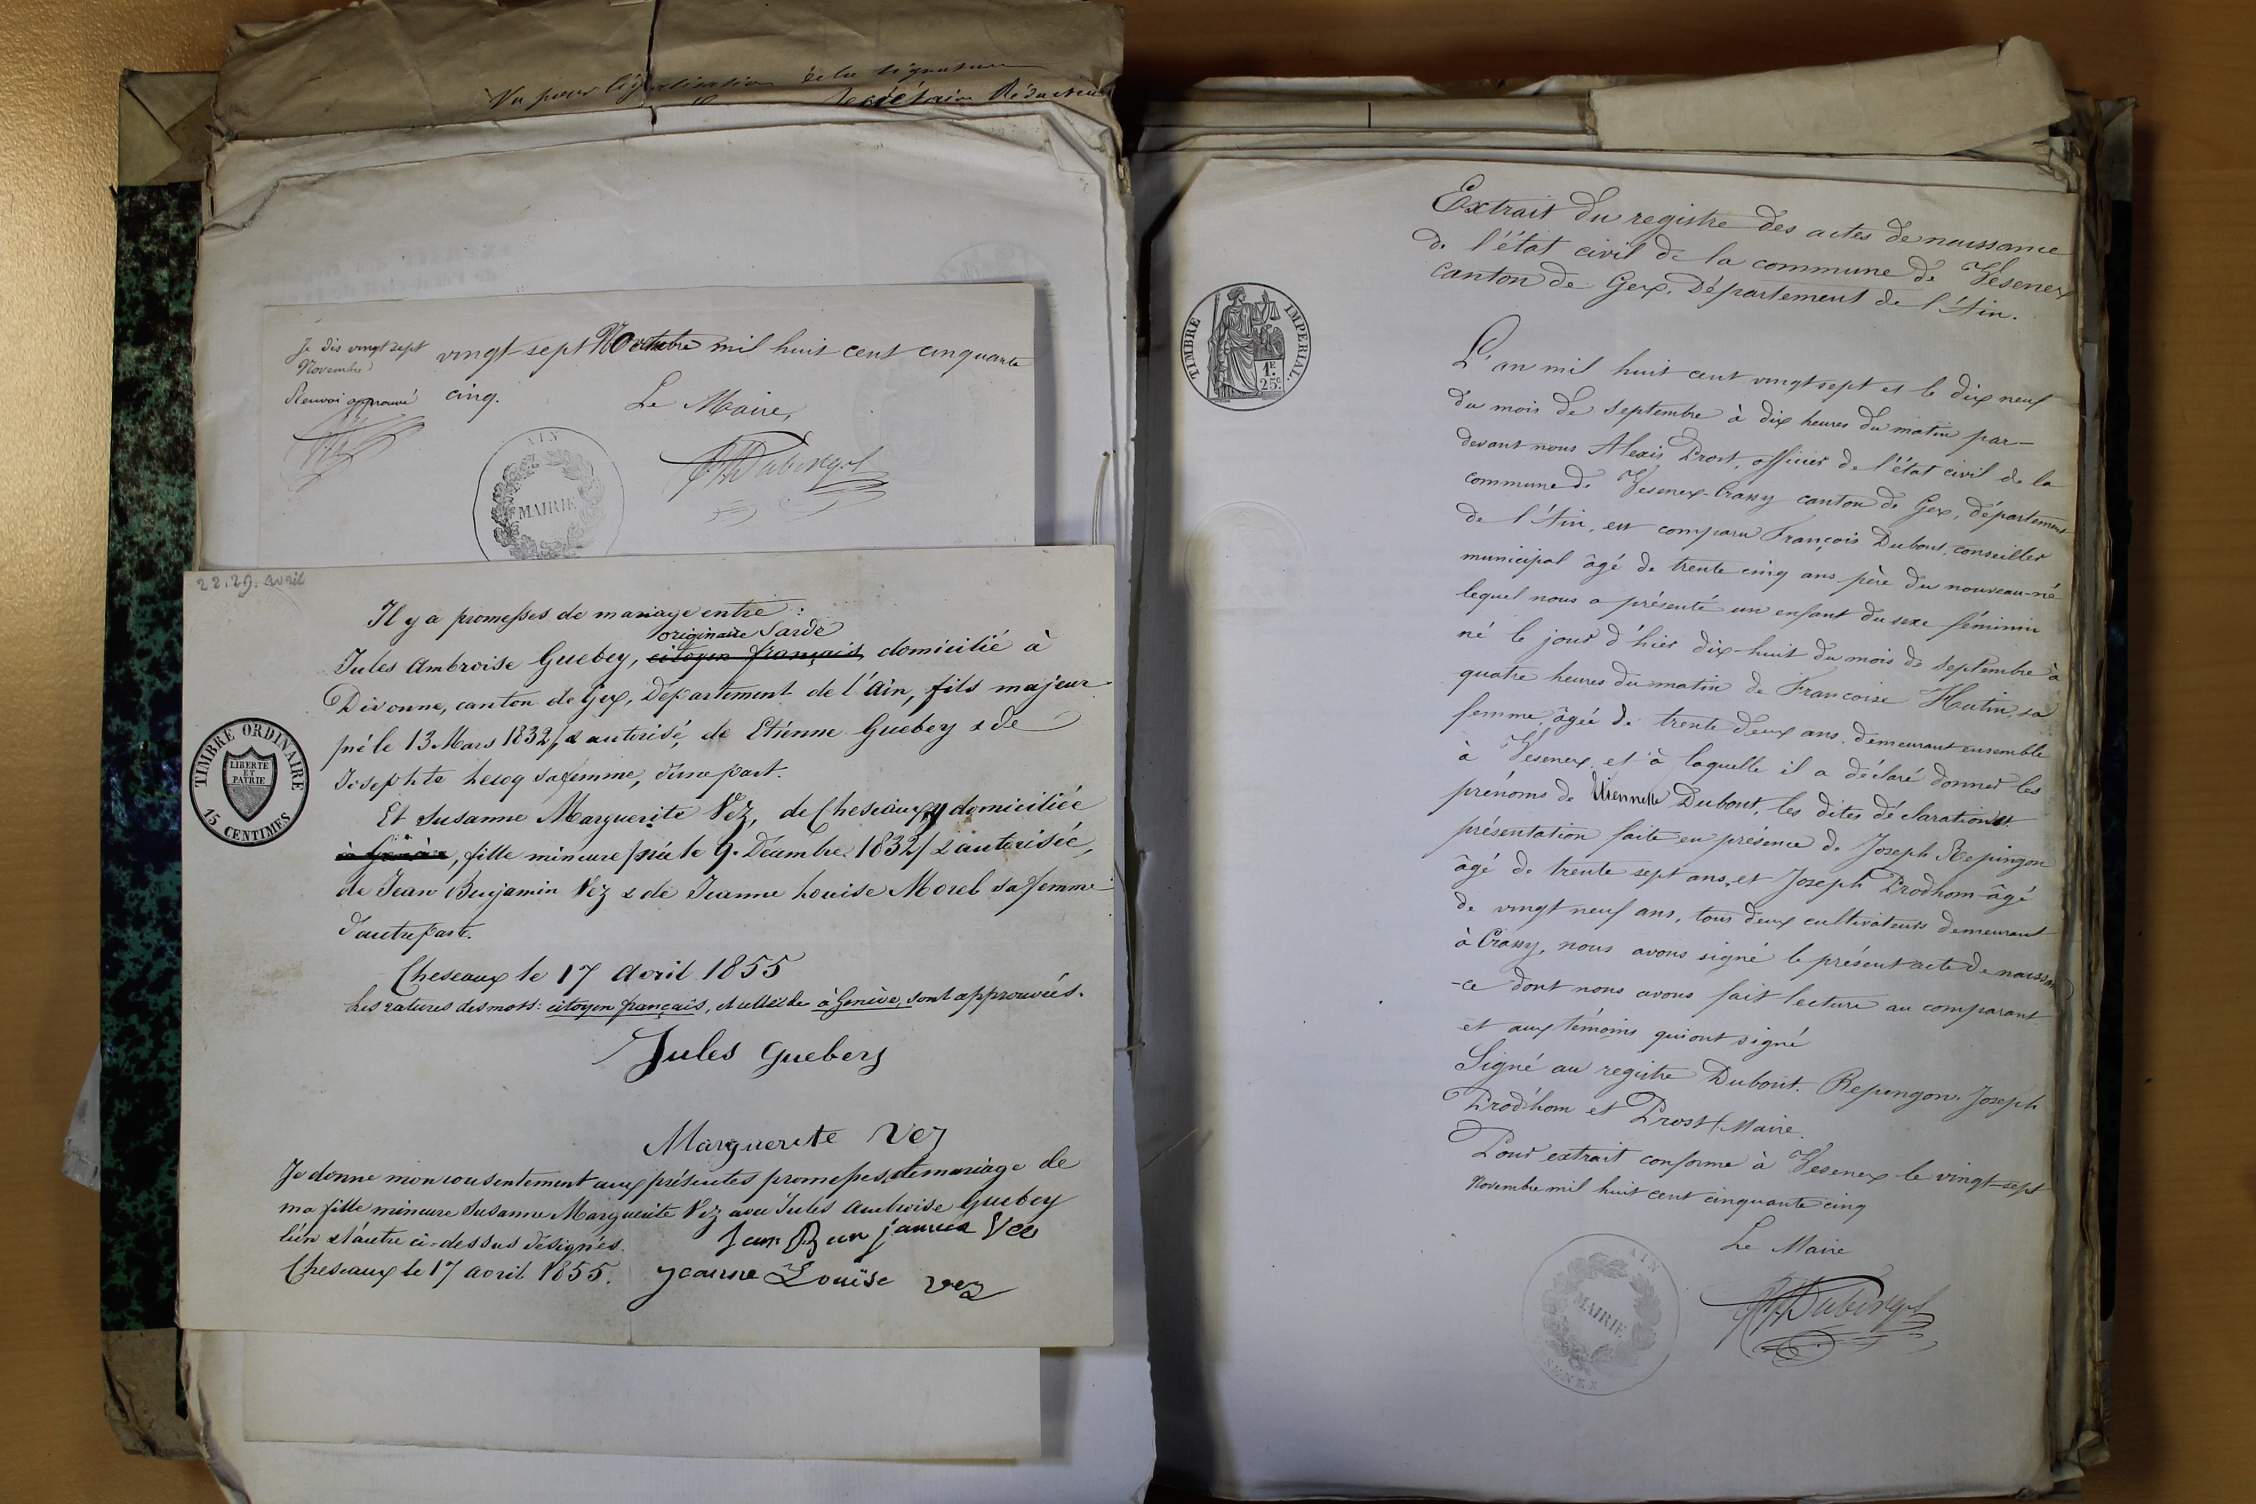 Vu pour légalisation de la signature
Secrétaire Rédacteur
Je dis vingt sept
Novembre
Renvoi approuvé
vingt sept Novembre mil huit cent cinquante
cinq.
Le Maire,
AIN
MAIRIE
22.29. avril
Il y a promesses de mariage entre :
originaire Sarde
Jules Ambroise Guebey, citoyen français, domicilié à
Divonne, canton de Gex, Département de l'Ain, fils majeur
né le 13. Mars 1832/, & autorisé, de Etienne Guebey & de
Josephte Lecoq sa femme, d'une part.
Et Susanne Marguerite Vez, de Cheseaux, y domiciliée
à Genève, fille mineure /née le 9. Décembre 1832/ & autorisée,
de Jean Benjamin Vez & de Jeanne Louise Morel sa femme
d'autre part.
Cheseaux le 17 avril 1855
Les ratures des mots: citoyen français, et celle de à Genève, sont approuvées.
Jules Guebey
Marguerite Vez
Je donne mon consentement aux présentes promesses de mariage de
ma fille mineure Susanne Marguerite Vez avec Jules Ambroise Guebey
l'un & l'autre ci-dessus désignés.
Jean Benjamin Vez
Cheseaux le 17 avril 1855.
Jeanne Louise Vez
TIMBRE ORDINAIRE
LIBERTE
ET
PATRIE
15 CENTIMES
Extrait du registre des actes de naissance
de l'état civil de la commune de Vesenex
Canton de Gex, Département de l'Ain.
TIMBRE IMPERIAL.
1F.
25c.
L'an mil huit cent vingt sept et le dix neuf
du mois de septembre à dix heures du matin par-
devant nous Alexis Prost, officier de l'état civil de la
commune de Vesenex-Crassy canton de Gex, département
de l'Ain, est comparu François Dubout, conseiller
municipal âgé de trente cinq ans père du nouveau-né
lequel nous a présenté un enfant du sexe féminin
né le jour d'hier dix-huit du mois de septembre à
quatre heures du matin de Françoise Hutin, sa
femme, âgée de trente deux ans, demeurant ensemble
à Vesenex, et à laquelle il a déclaré donner les
prénoms de Etiennette Dubout, les dites déclaration et
présentation faite en présence de Joseph Repingon
âgé de trente sept ans, et Joseph Prodhom âgé
de vingt neuf ans, tous deux cultivateurs demeurant
à Crassy, nous avons signé le présent acte de naissan
-ce dont nous avons fait lecture au comparant
et aux témoins qui ont signé
Signé au registre Dubout. Repingon. Joseph
Prodhom et Prost / Maire.
Pour extrait conforme à Vesenex le vingt-sept
Novembre mil huit cent cinquante cinq
Le Maire
AIN
MAIRIE